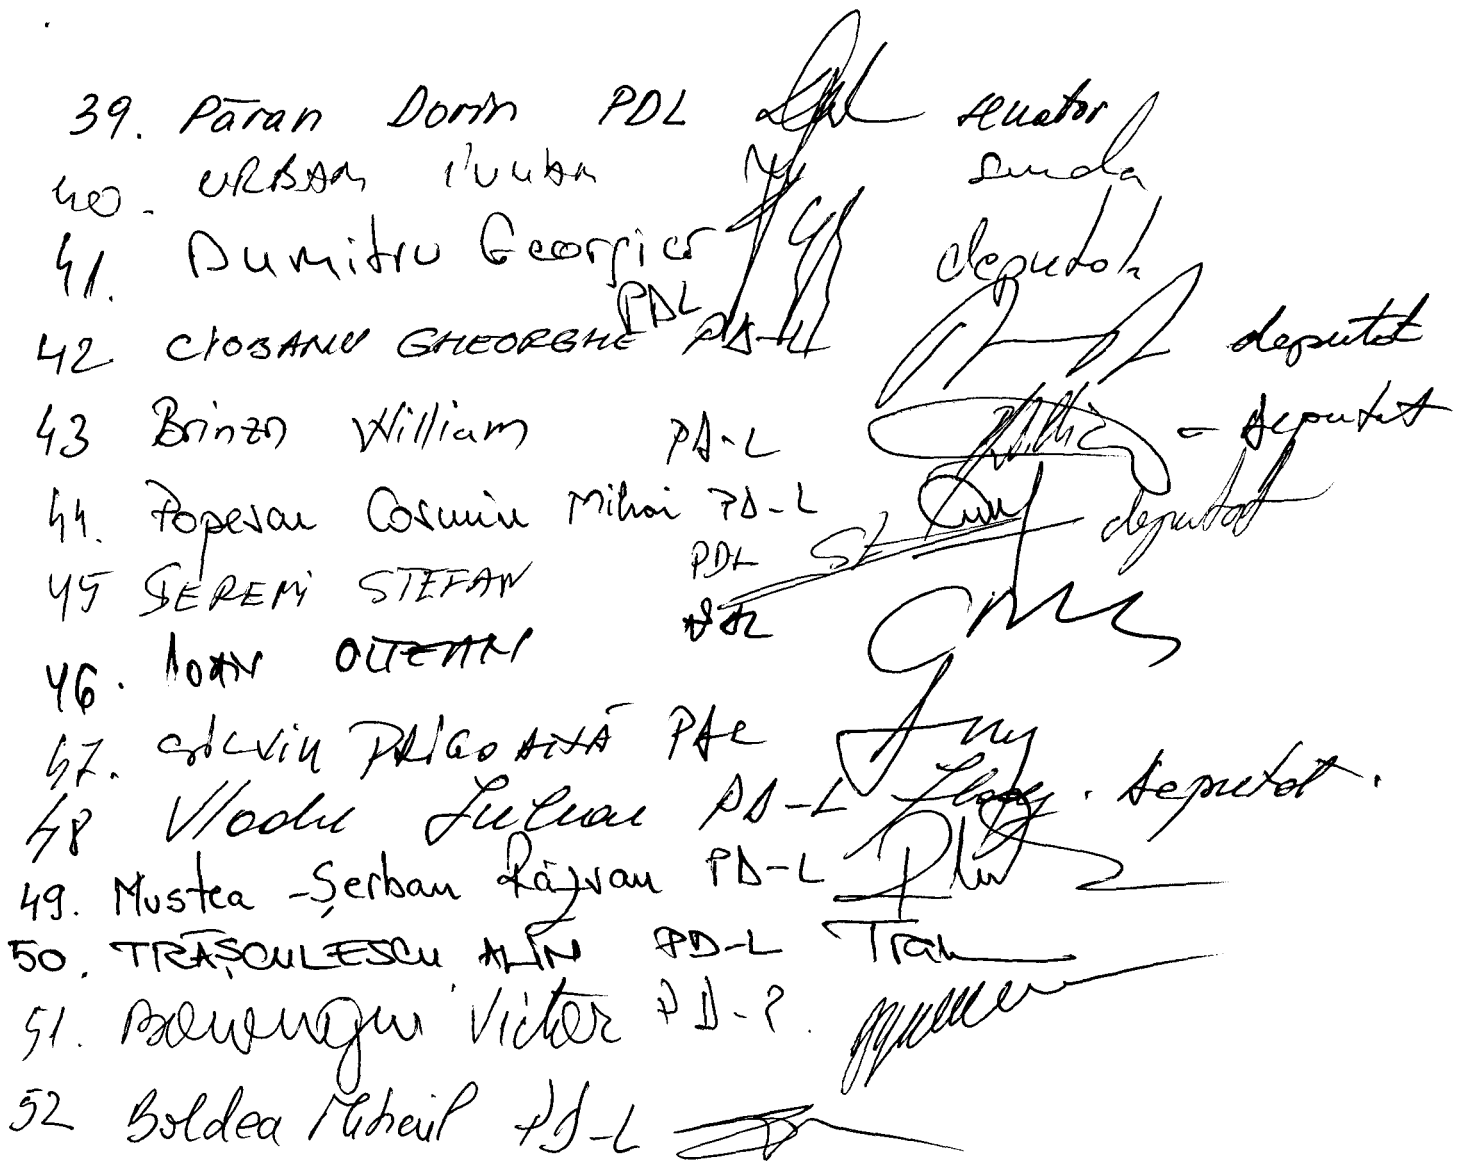 39. Păran Dorin PDL senator
40. URBAN Iulian
41. Dumitru Georgică deputat
PDL
42 CIOBANU GHEORGHE PD-L deputat
43 Brînză William PD-L - deputat
44. Popescu Cosmin Mihai PD-L deputat
45 SEREMI STEFAN PDL
46. IOAN OLTEAN
47. SILVIU PRIGOANĂ PDL
48 Vladu Iulian PD-L . deputat.
49. Mustea-Șerban Răzvan PD-L
50. TRĂȘCULESCU ALIN PD-L
51. Victor PD-L.
52 Boldea Mihail PD-L